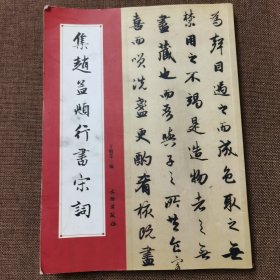 集趙孟頫行書宋詞
文物出版社
為聲目遇之而成色取之無
禁用之不竭是造物者之無
盡藏也而吾與子之所共食客
喜而咲洗盞更酌肴核既盡